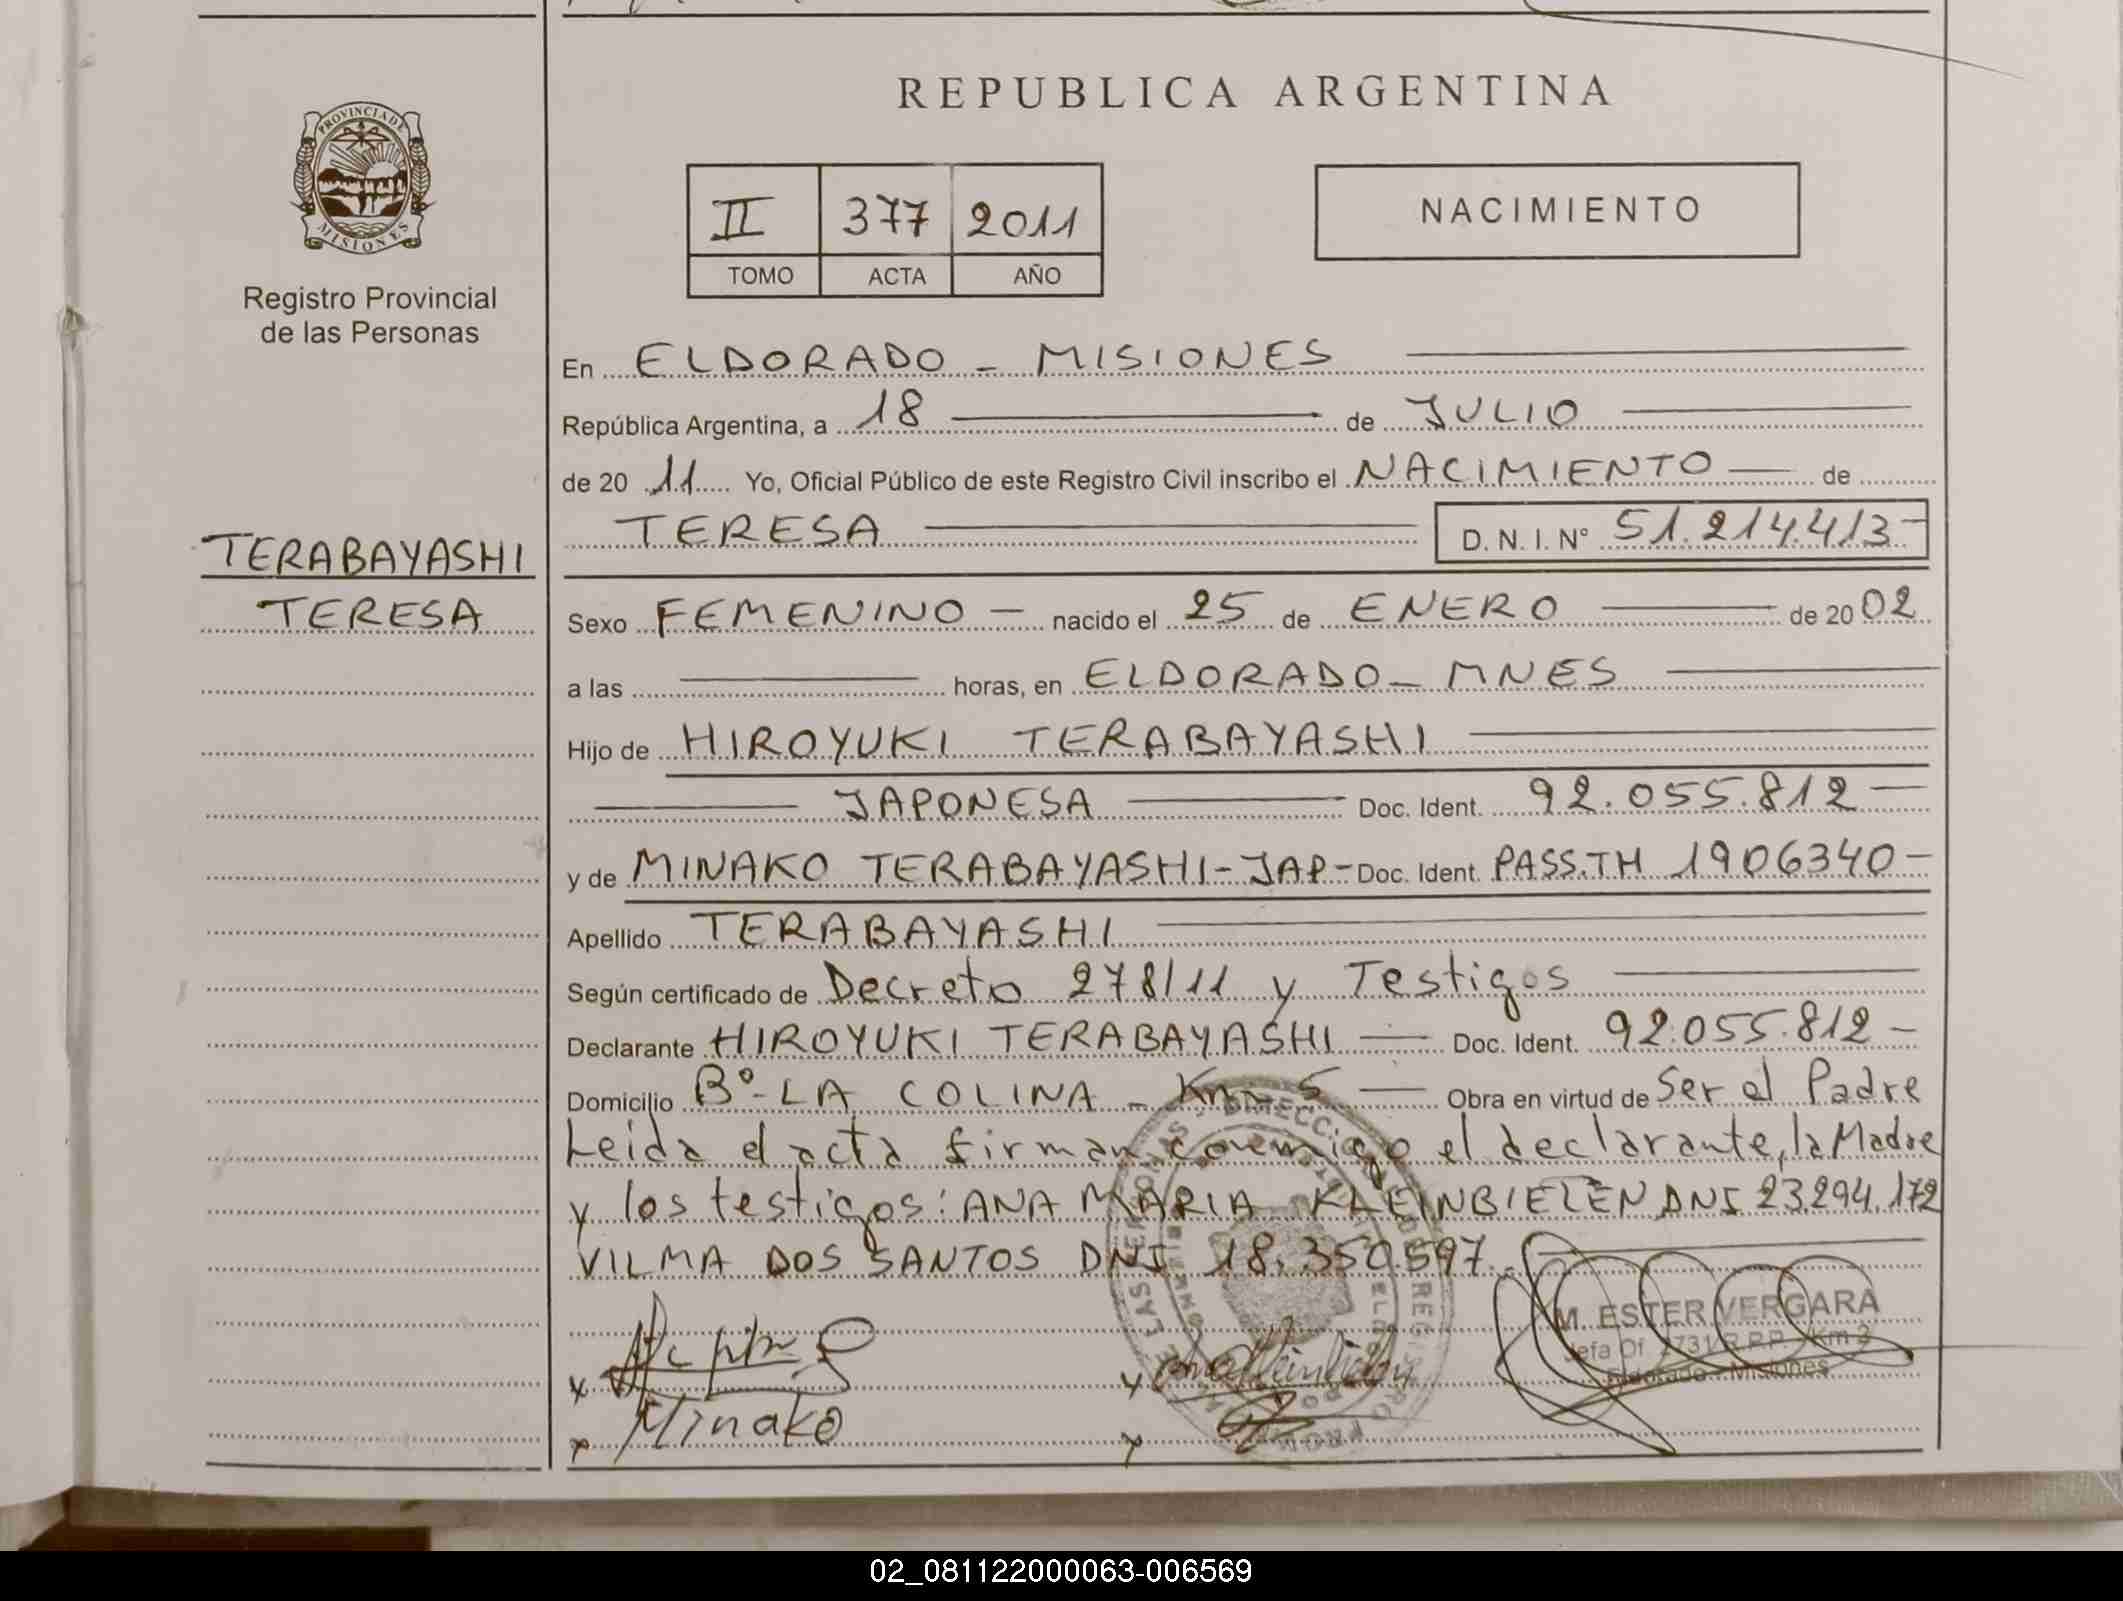 REPUBLICA ARGENTINA
PROVINCIA DE
MISIONES
Registro Provincial
de las Personas
II 377 2011
TOMO ACTA AÑO
NACIMIENTO
TERABAYASHI
TERESA
En ELDORADO - MISIONES
República Argentina, a 18 de JULIO
de 20 11 Yo, Oficial Público de este Registro Civil inscribo el NACIMIENTO de
TERESA D. N. I. N° 51.214.413-
Sexo FEMENINO - nacido el 25 de ENERO de 20 02
a las horas, en ELDORADO - MNES
Hijo de HIROYUKI TERABAYASHI
JAPONESA Doc. Ident. 92.055.812-
y de MINAKO TERABAYASHI-JAP- Doc. Ident. PASS.TH 1906340-
Apellido TERABAYASHI
Según certificado de Decreto 278/11 y Testigos
Declarante HIROYUKI TERABAYASHI - Doc. Ident. 92.055.812-
Domicilio B°-LA COLINA - Km 5 - Obra en virtud de Ser el Padre
Leida el acta firman conmigo el declarante, la Madre
y los testigos: ANA MARIA KLEINBIELEN DNI 23.294.172
VILMA DOS SANTOS DNI 18.350.597.
M. ESTER VERGARA
Jefa Of. 2731 R.P.P. /Km 2
Eldorado - Misiones
x
x Minako
02_081122000063-006569